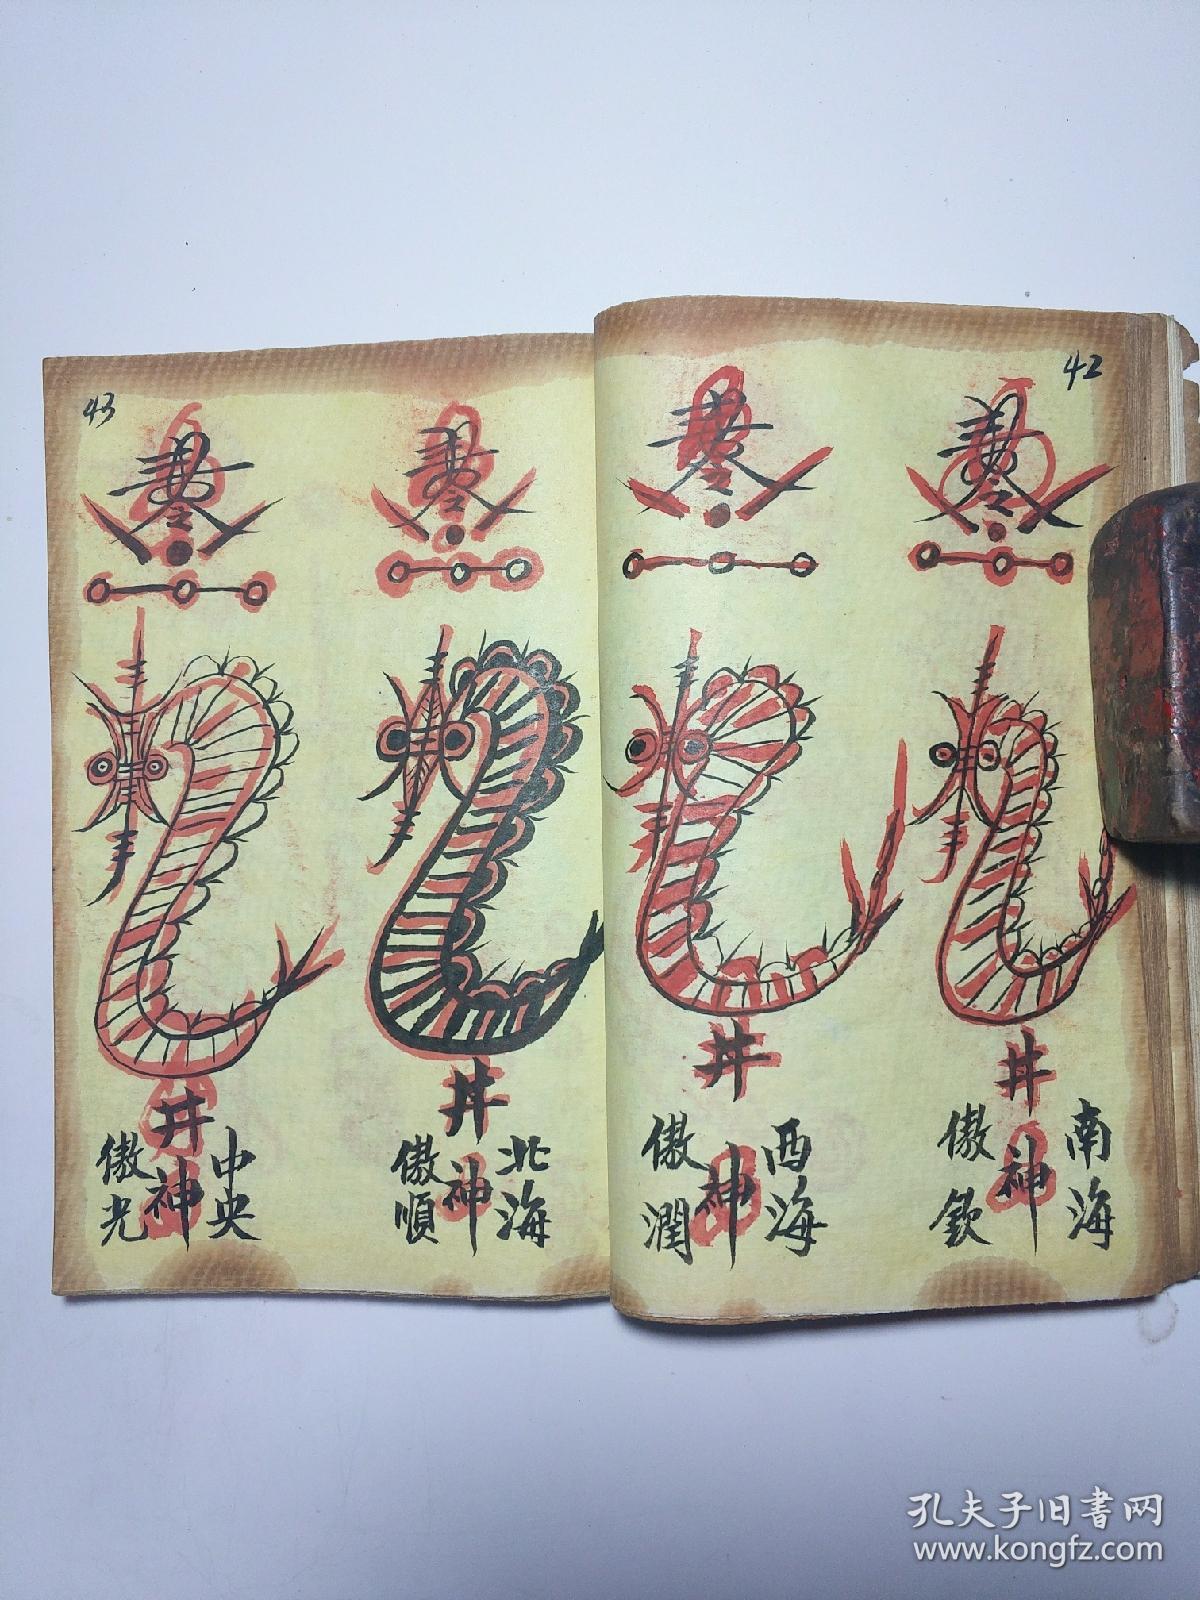 42
井
南海
神
傲欽
井
西海
神
傲潤
43
井
北海
神
傲順
井
中央
神
傲光
孔夫子旧书网
www.kongfz.com